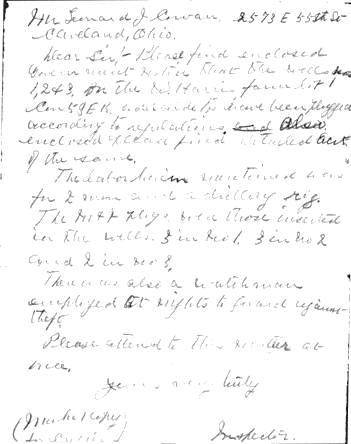 Mr Leonard J. Cowan, 2573 E 55th St
Cleveland, Ohio.
Dear Sir:- Please find enclosed
Government notice that the wells nos
1, 2 & 3, on the farm Lot 1
Con 5 have been plugged
according to regulations. and Also
enclosed please find detailed acct.
of the same.
The labor mentioned was
for 2 men and a drillery rig.
The plugs were those inserted
in the wells. 3 in No 1, 3 in No 2
and 2 in No 3.
There was also a watchman
employed at nights to guard against
theft.
Please attend to this matter at
once.
Yours very truly
Inspector.